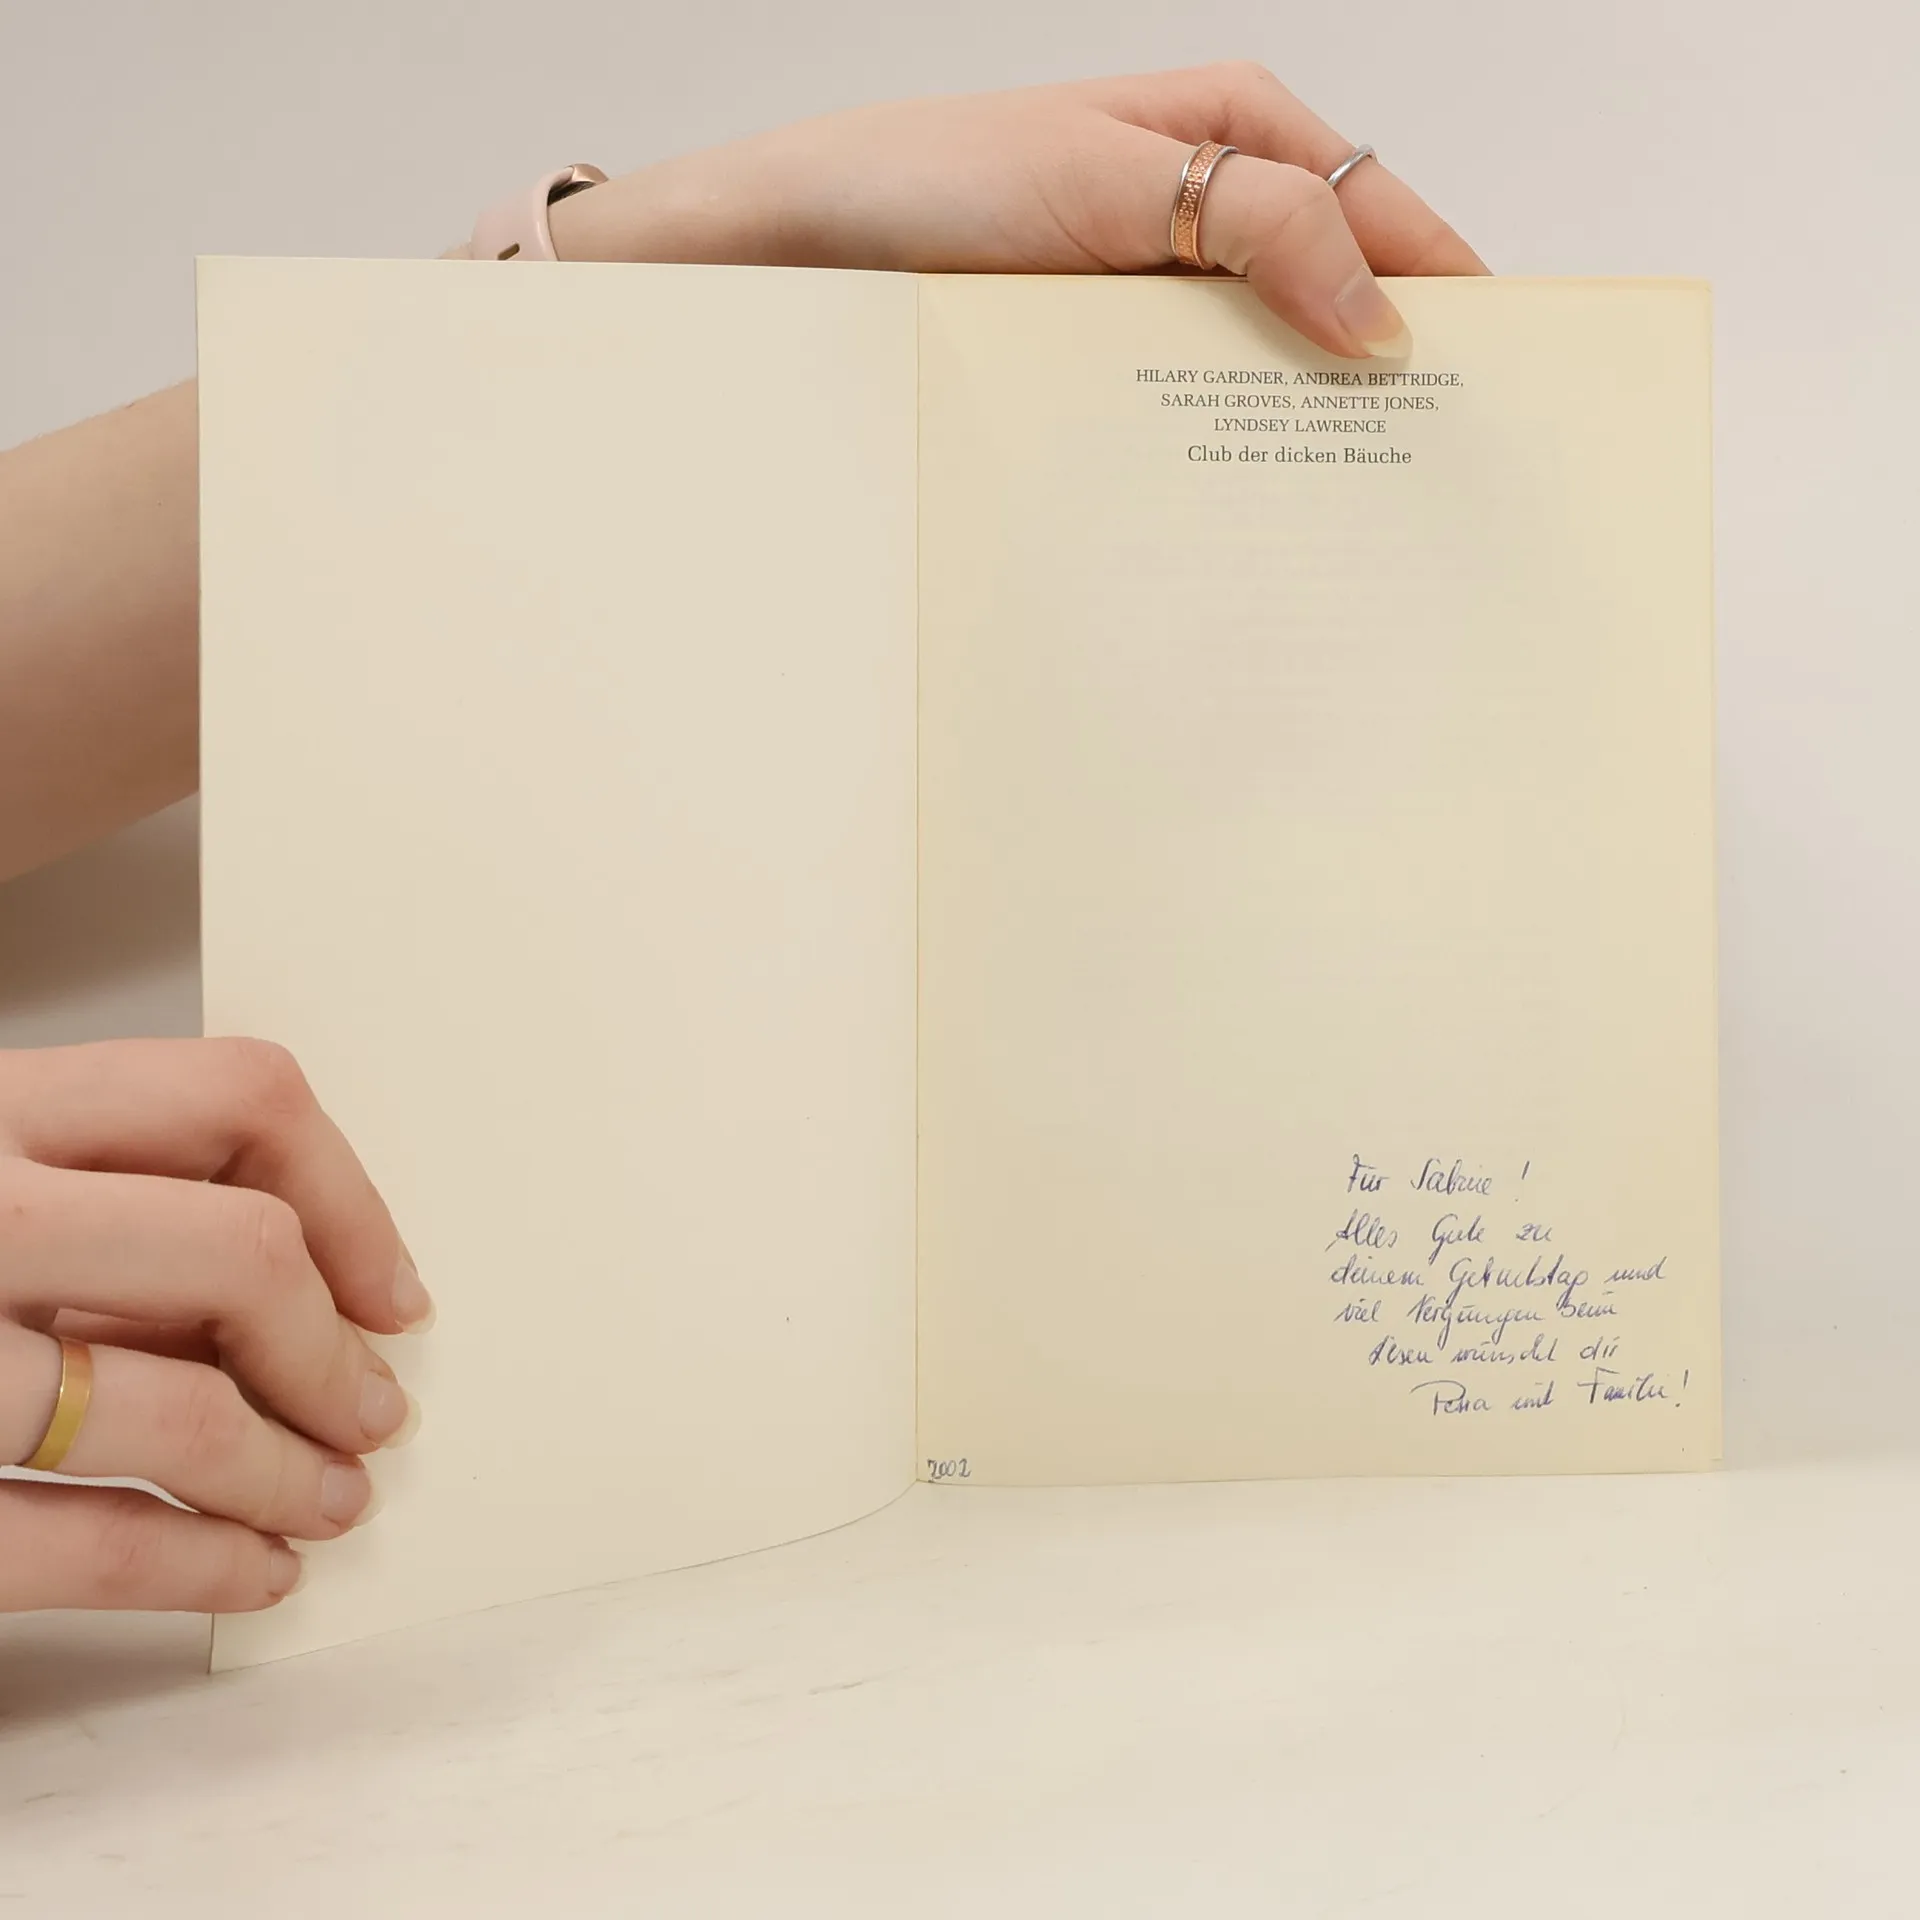 HILARY GARDNER, ANDREA BETTRIDGE,
SARAH GROVES, ANNETTE JONES,
LYNDSEY LAWRENCE
Club der dicken Bäuche
Für Sabine !
Alles Gute zu
deinem Geburtstag und
viel Vergnügen beim
Lesen wünscht dir
Petra mit Familie !
2002